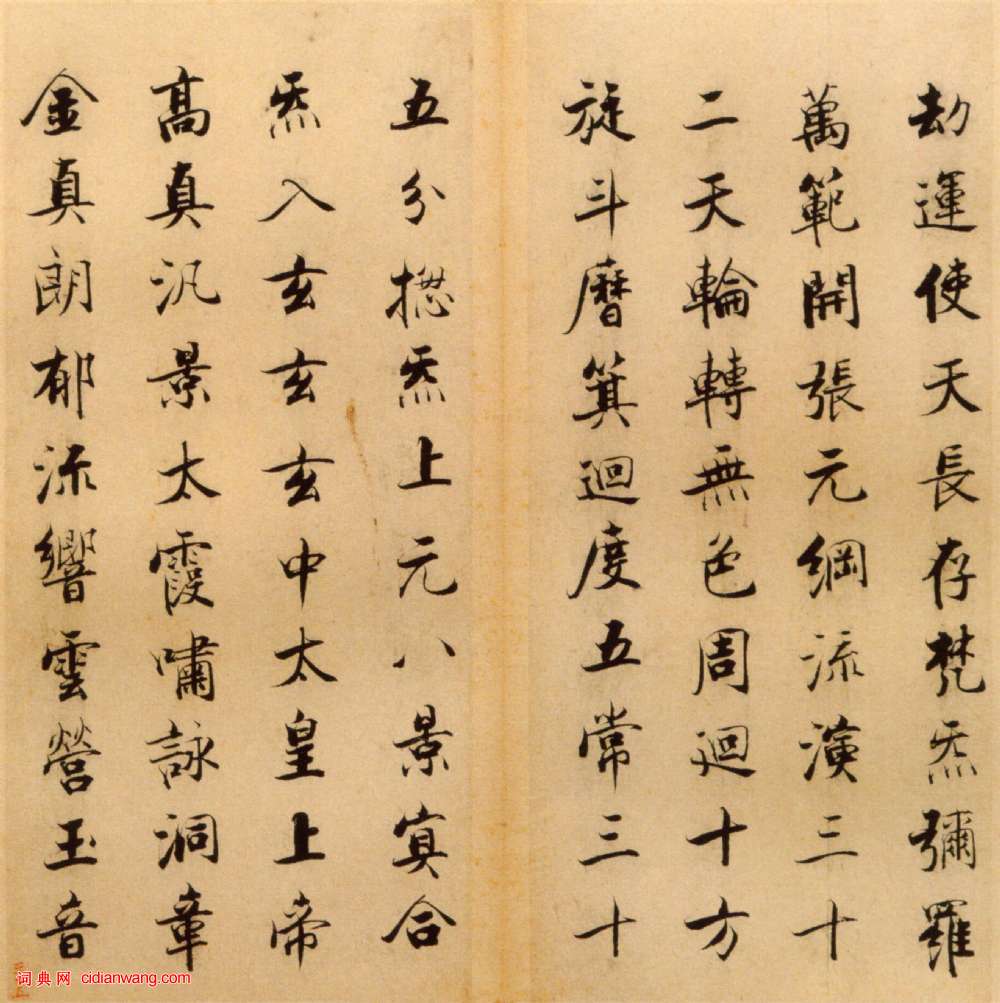 劫運使天長存梵炁彌羅
萬範開張元綱流演三十
二天輪轉無色周迴十方
旋斗曆箕迴度五常三十
五分揔炁上元八景冥合
炁入玄玄玄中太皇上帝
高真汎景太霞嘯詠洞章
金真朗郁流響雲營玉音
词典网 cidianwang.com